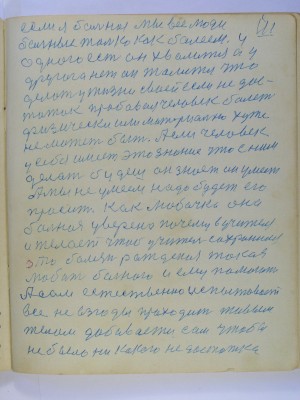 если я больная мы все люди 121
больные только как болеем. у
одного есть он хвалится а у
другого нет он жалится что
делать у жизни своей если не дос-
таток пробавая человек болеет
физически и материально хуже
не может быть. А если человек
у себя имеет это знание что с ним
делать будем он знает он умеет
А мы не умеем надо будет его
просить. Как любочка она
больная уверена почему в учителя
и желает чтоб учитель сохранился
это болезн рождения такая
любить больного и ему помогать
А сам естественно испытывает
все невзгоды проходит живым
телом добивается сам чтобы
не было ни какого недостатка